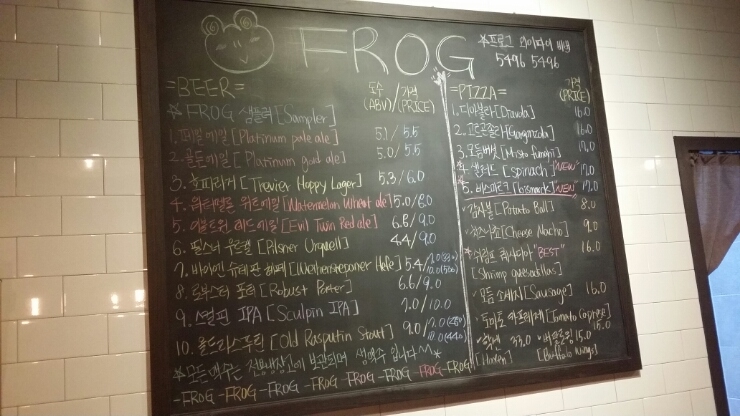 FROG
*프로그 와이파이 비번
5496 5496
=BEER=
도수 / 가격
(ABV)/(PRICE)
*FROG 샘플러 [Sampler]
1. 페일에일 [Platinum pale ale] 5.1 / 5.5
2. 골드에일 [Platinum gold ale] 5.0 / 5.5
3. 호피라거 [Trevier Hoppy Lager] 5.3 / 6.0
4. 워터멜론 위트에일 [Watermelon Wheat ale] 5.0 / 8.0
5. 이블트윈 레드에일 [Evil Twin Red ale] 6.8 / 9.0
6. 필스너 우르켈 [Pilsner Urquell] 4.4 / 9.0
7. 바이엔슈테판 헤페 [Weihenstephaner Hefe] 5.4 /
8. 로부스터 포터 [Robust Porter] 6.6 / 9.0
9. 스컬핀 IPA [Sculpin IPA] 7.0 / 10.0
10. 올드라스푸틴 [Old Rasputin Stout] 9.0 /
*모든 맥주는 전용냉장고에 보관되며 생맥주 입니다 ^^*
-FROG -FROG -FROG -FROG -FROG -FROG -FROG-
=PIZZA=
가격
(PRICE)
1. 디아볼라 [Diavola] 16.0
2. 고르곤졸라 [Gorgonzola] 16.0
3. 모듬버섯 [Misto funghi] 17.0
*4. 샐러드 [spinach] "NEW" 17.0
*5. 비스마르크 [bismark] "NEW" 17.0
감자볼 [Potato Ball] 8.0
치즈나쵸 [Cheese Nacho] 9.0
*쉬림프 퀘사디아 "BEST" 16.0
[Shrimp quesadillas]
모듬 소세지 [Sausage] 16.0
토마토 카프레제 [Tomato Caprese] 15.0
33.0 버팔로윙 15.0
[Buffalo wings]